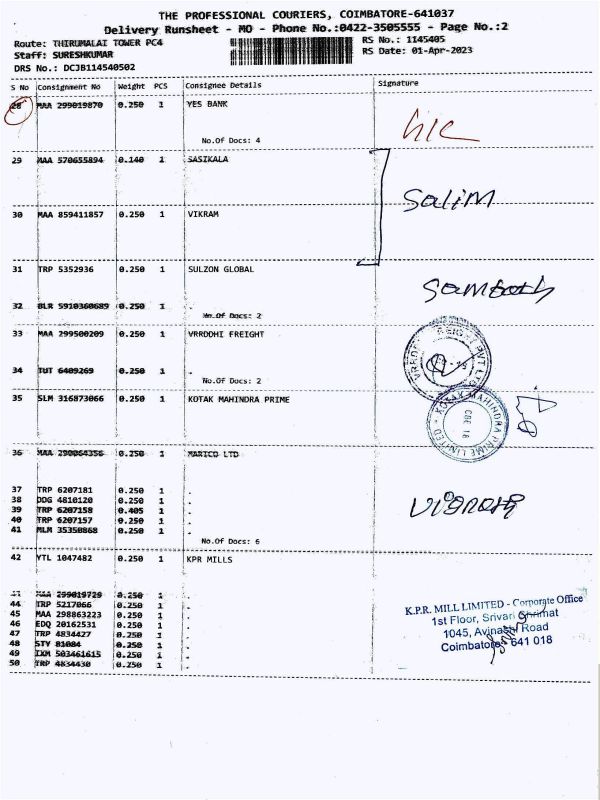 THE PROFESSIONAL COURIERS, COIMBATORE-641037
Delivery Runsheet - MO - Phone No.:0422-3505555 - Page No.:2
Route: THIRUMALAI TOWER PC4 RS No.: 1145405
Staff: SURESHKUMAR RS Date: 01-Apr-2023
DRS No.: DCJB114540502
S No Consignment No Weight PCS Consignee Details Signature
28 MAA 299019870 0.250 1 YES BANK
No.Of Docs: 4
29 MAA 570655894 0.140 1 SASIKALA
Salim
30 MAA 859411857 0.250 1 VIKRAM
31 TRP 5352936 0.250 1 SULZON GLOBAL
Sampath
32 BLR 5910360689 0.250 1 .
No.Of Docs: 2
33 MAA 299500209 0.250 1 VRRDDHI FREIGHT
34 TUT 6409269 0.250 1 .
No.Of Docs: 2
35 SLM 316873066 0.250 1 KOTAK MAHINDRA PRIME
KOTAK MAHINDRA PRIME LIMITED
CBE 18
36 MAA 290064356 0.250 1 MARICO LTD
37 TRP 6207181 0.250 1 .
38 DDG 4810120 0.250 1 .
39 TRP 6207158 0.405 1 .
40 TRP 6207157 0.250 1 .
41 MLM 35350868 0.250 1 .
No.Of Docs: 6
42 YTL 1047482 0.250 1 KPR MILLS
MAA 299019729 0.250 1 .
44 TRP 5217066 0.250 1 .
45 MAA 298863223 0.250 1 .
46 EDQ 20162531 0.250 1 .
47 TRP 4834427 0.250 1 .
48 STY 81084 0.250 1 .
49 IXM 503461615 0.250 1 .
50 TRP 4834430 0.250 1 .
K.P.R. MILL LIMITED - Corporate Office
1st Floor, Srivari Shrimat
1045, Avinashi Road
Coimbatore - 641 018